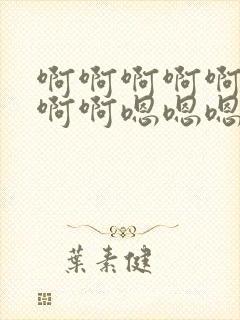 啊啊啊啊啊
啊啊嗯嗯嗯
葉素健